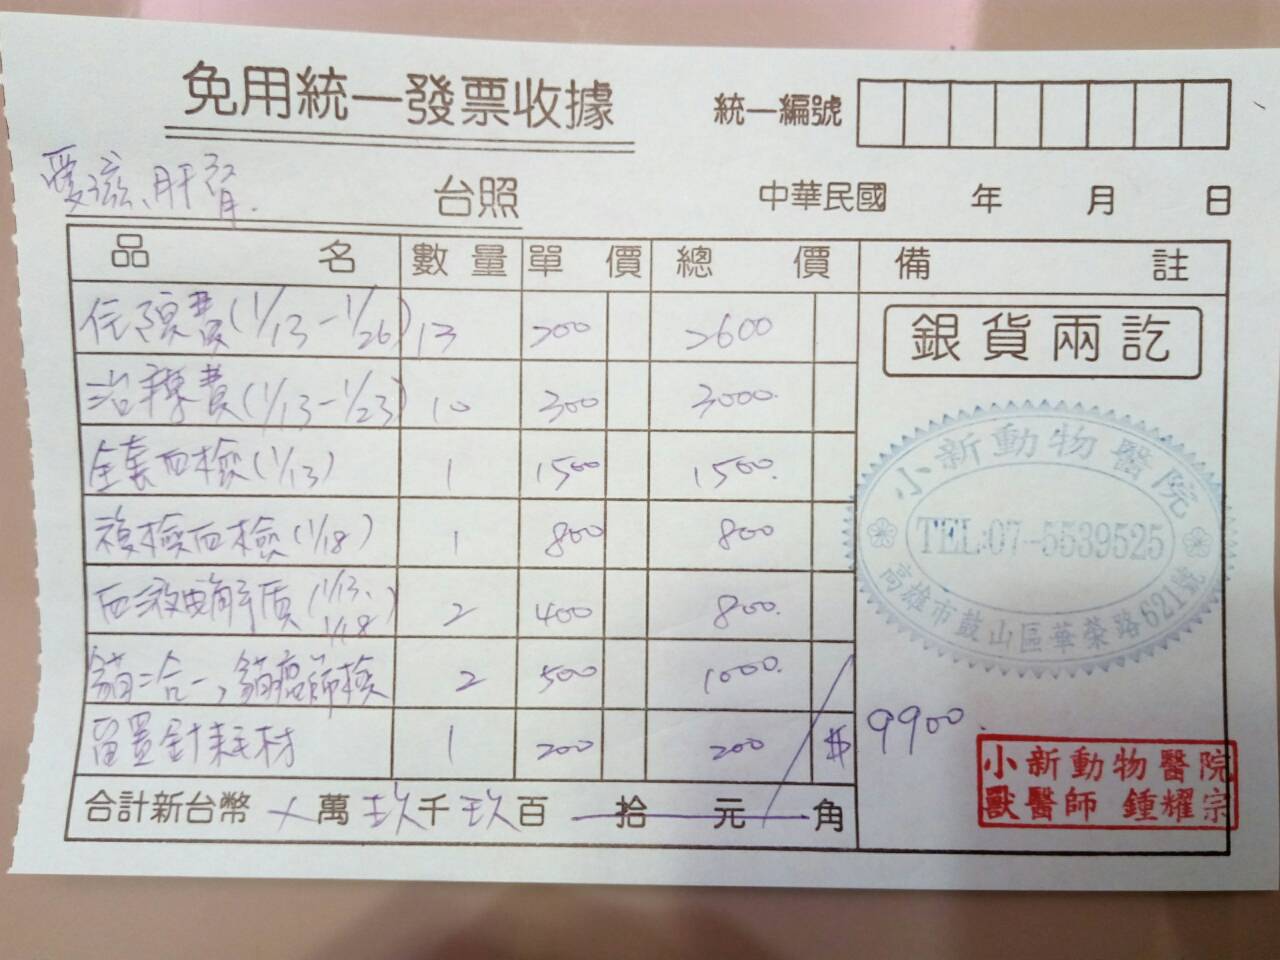 免用統一發票收據
統一編號
愛滋、肝腎.
台照
中華民國 年 月 日
品名 數量 單價 總價 備註
住院費(1/13-1/26) 13 200 2600
治療費(1/13-1/23) 10 300 3000.
全套血檢(1/13) 1 1500 1500.
複檢血檢(1/18) 1 800 800
血液電解質(1/13、1/18) 2 400 800.
貓二合一,貓瘟篩檢 2 500 1000.
留置針耗材 1 200 200 $ 9900.
合計新台幣 ㄨ 萬 玖 千 玖 百 拾 元 角
銀貨兩訖
小新動物醫院
TEL:07-5539525
高雄市鼓山區華榮路621號
小新動物醫院
獸醫師 鍾耀宗